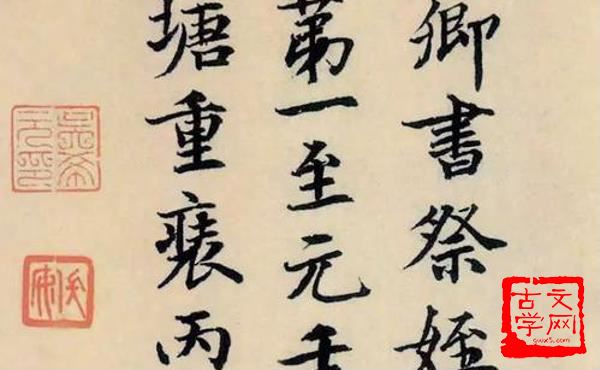 卿書祭姪
第一至元壬
塘重裝丙
古文学网